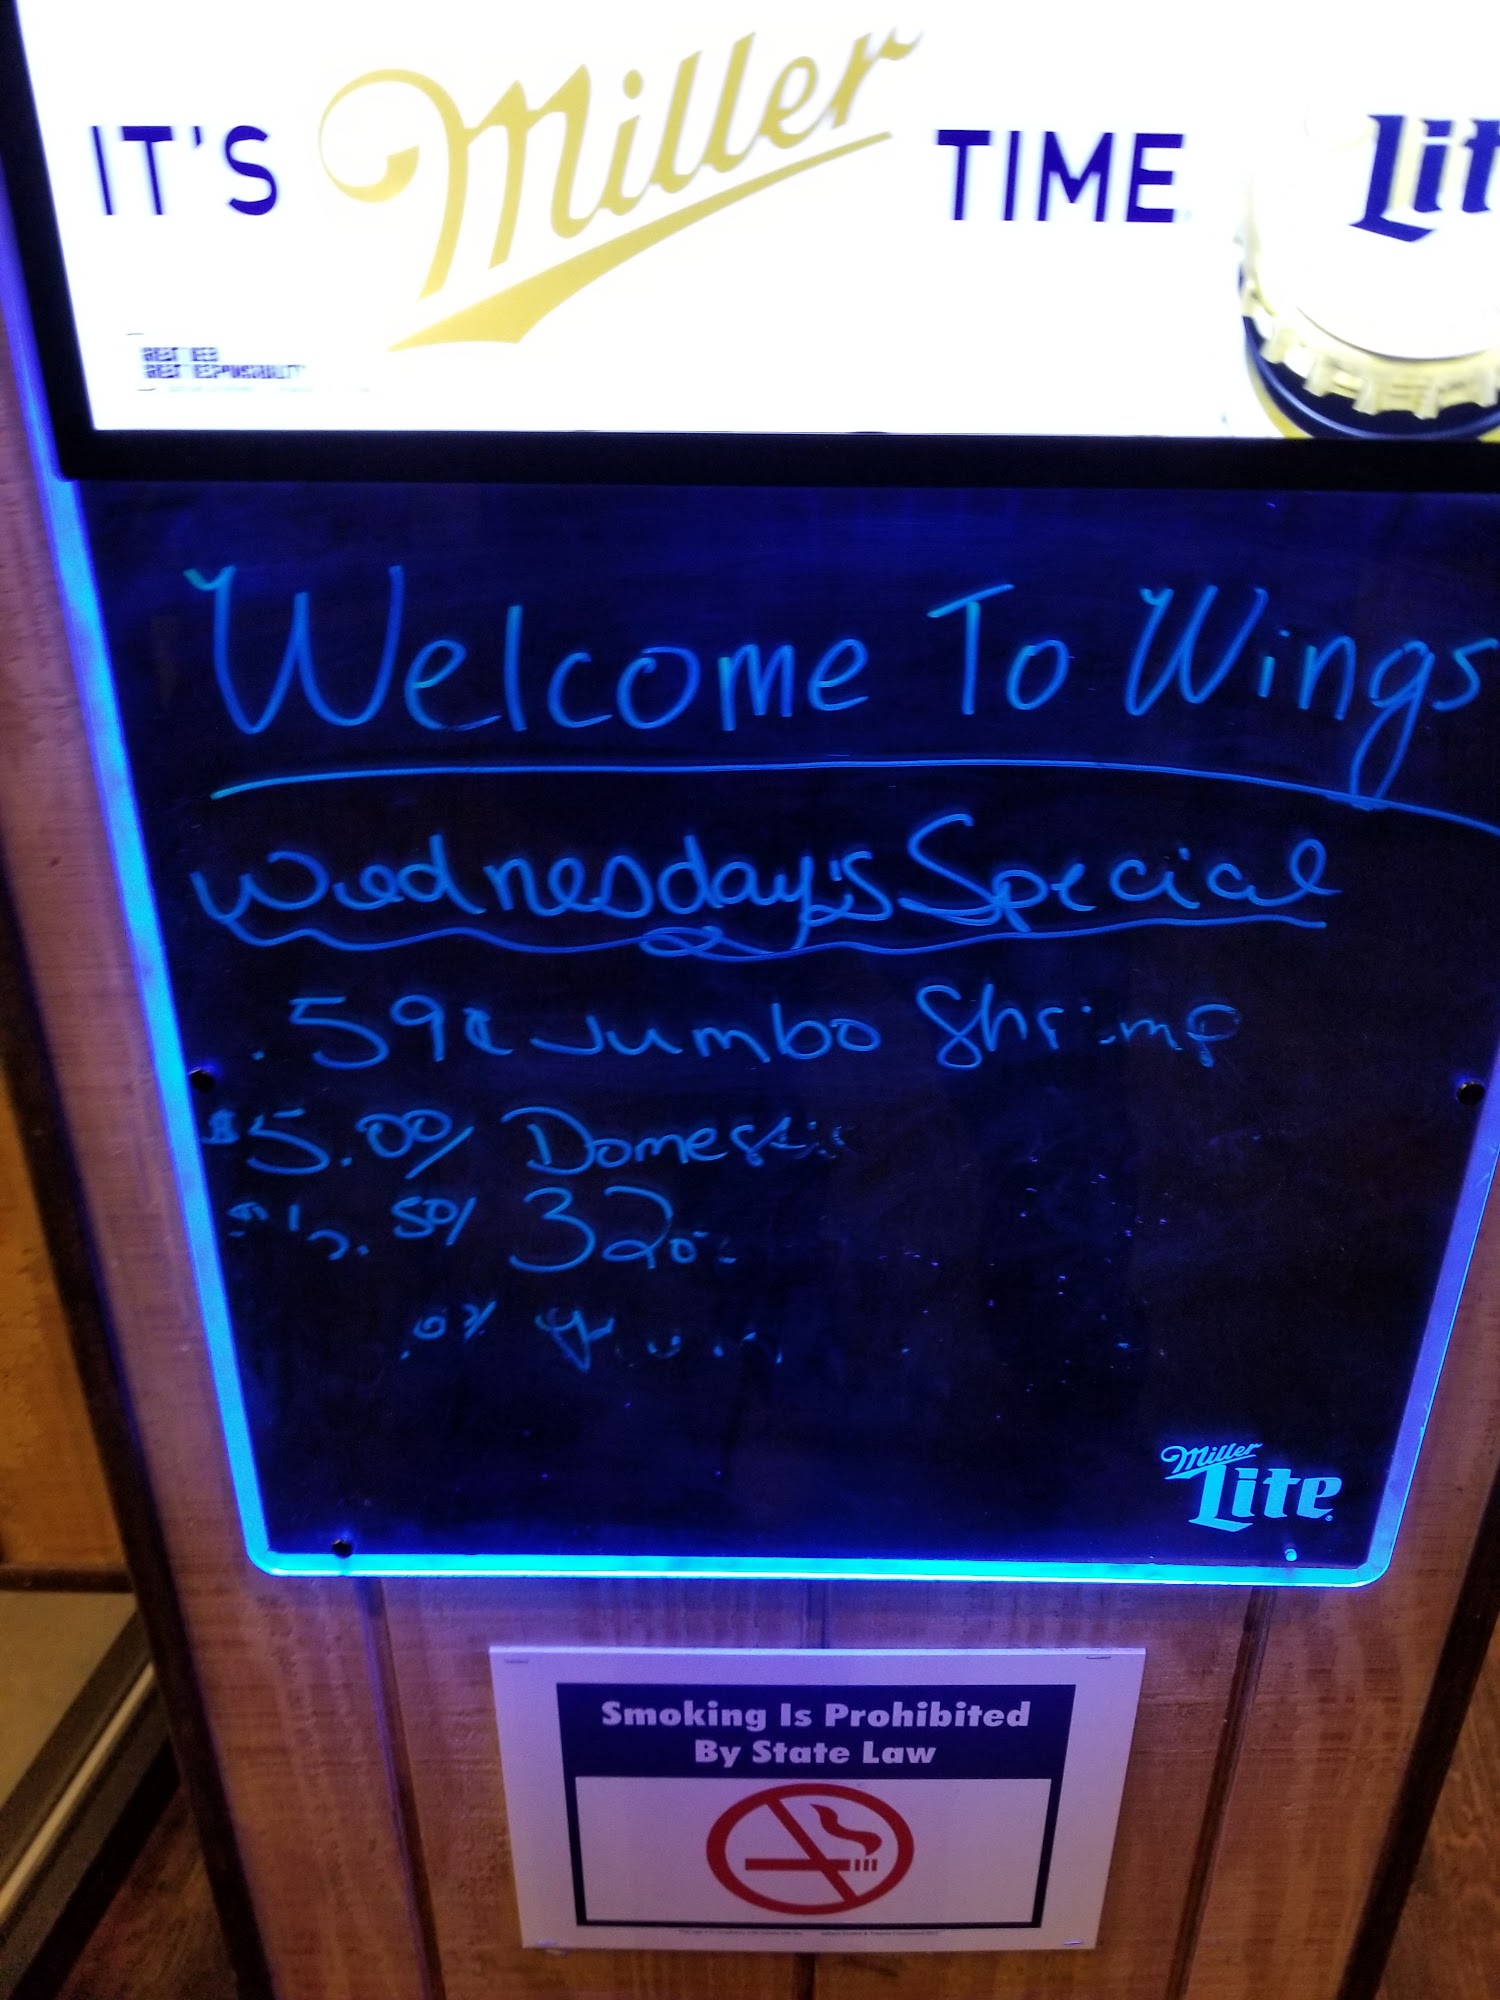 IT'S Miller TIME
Lit
GREAT BEER
GREAT RESPONSIBILITY
Welcome To Wings
Wednesday's Special
.59¢ Jumbo Shrimp
$5.00/ Domestic
.50/ 32oz
Miller
Lite
Smoking Is Prohibited
By State Law